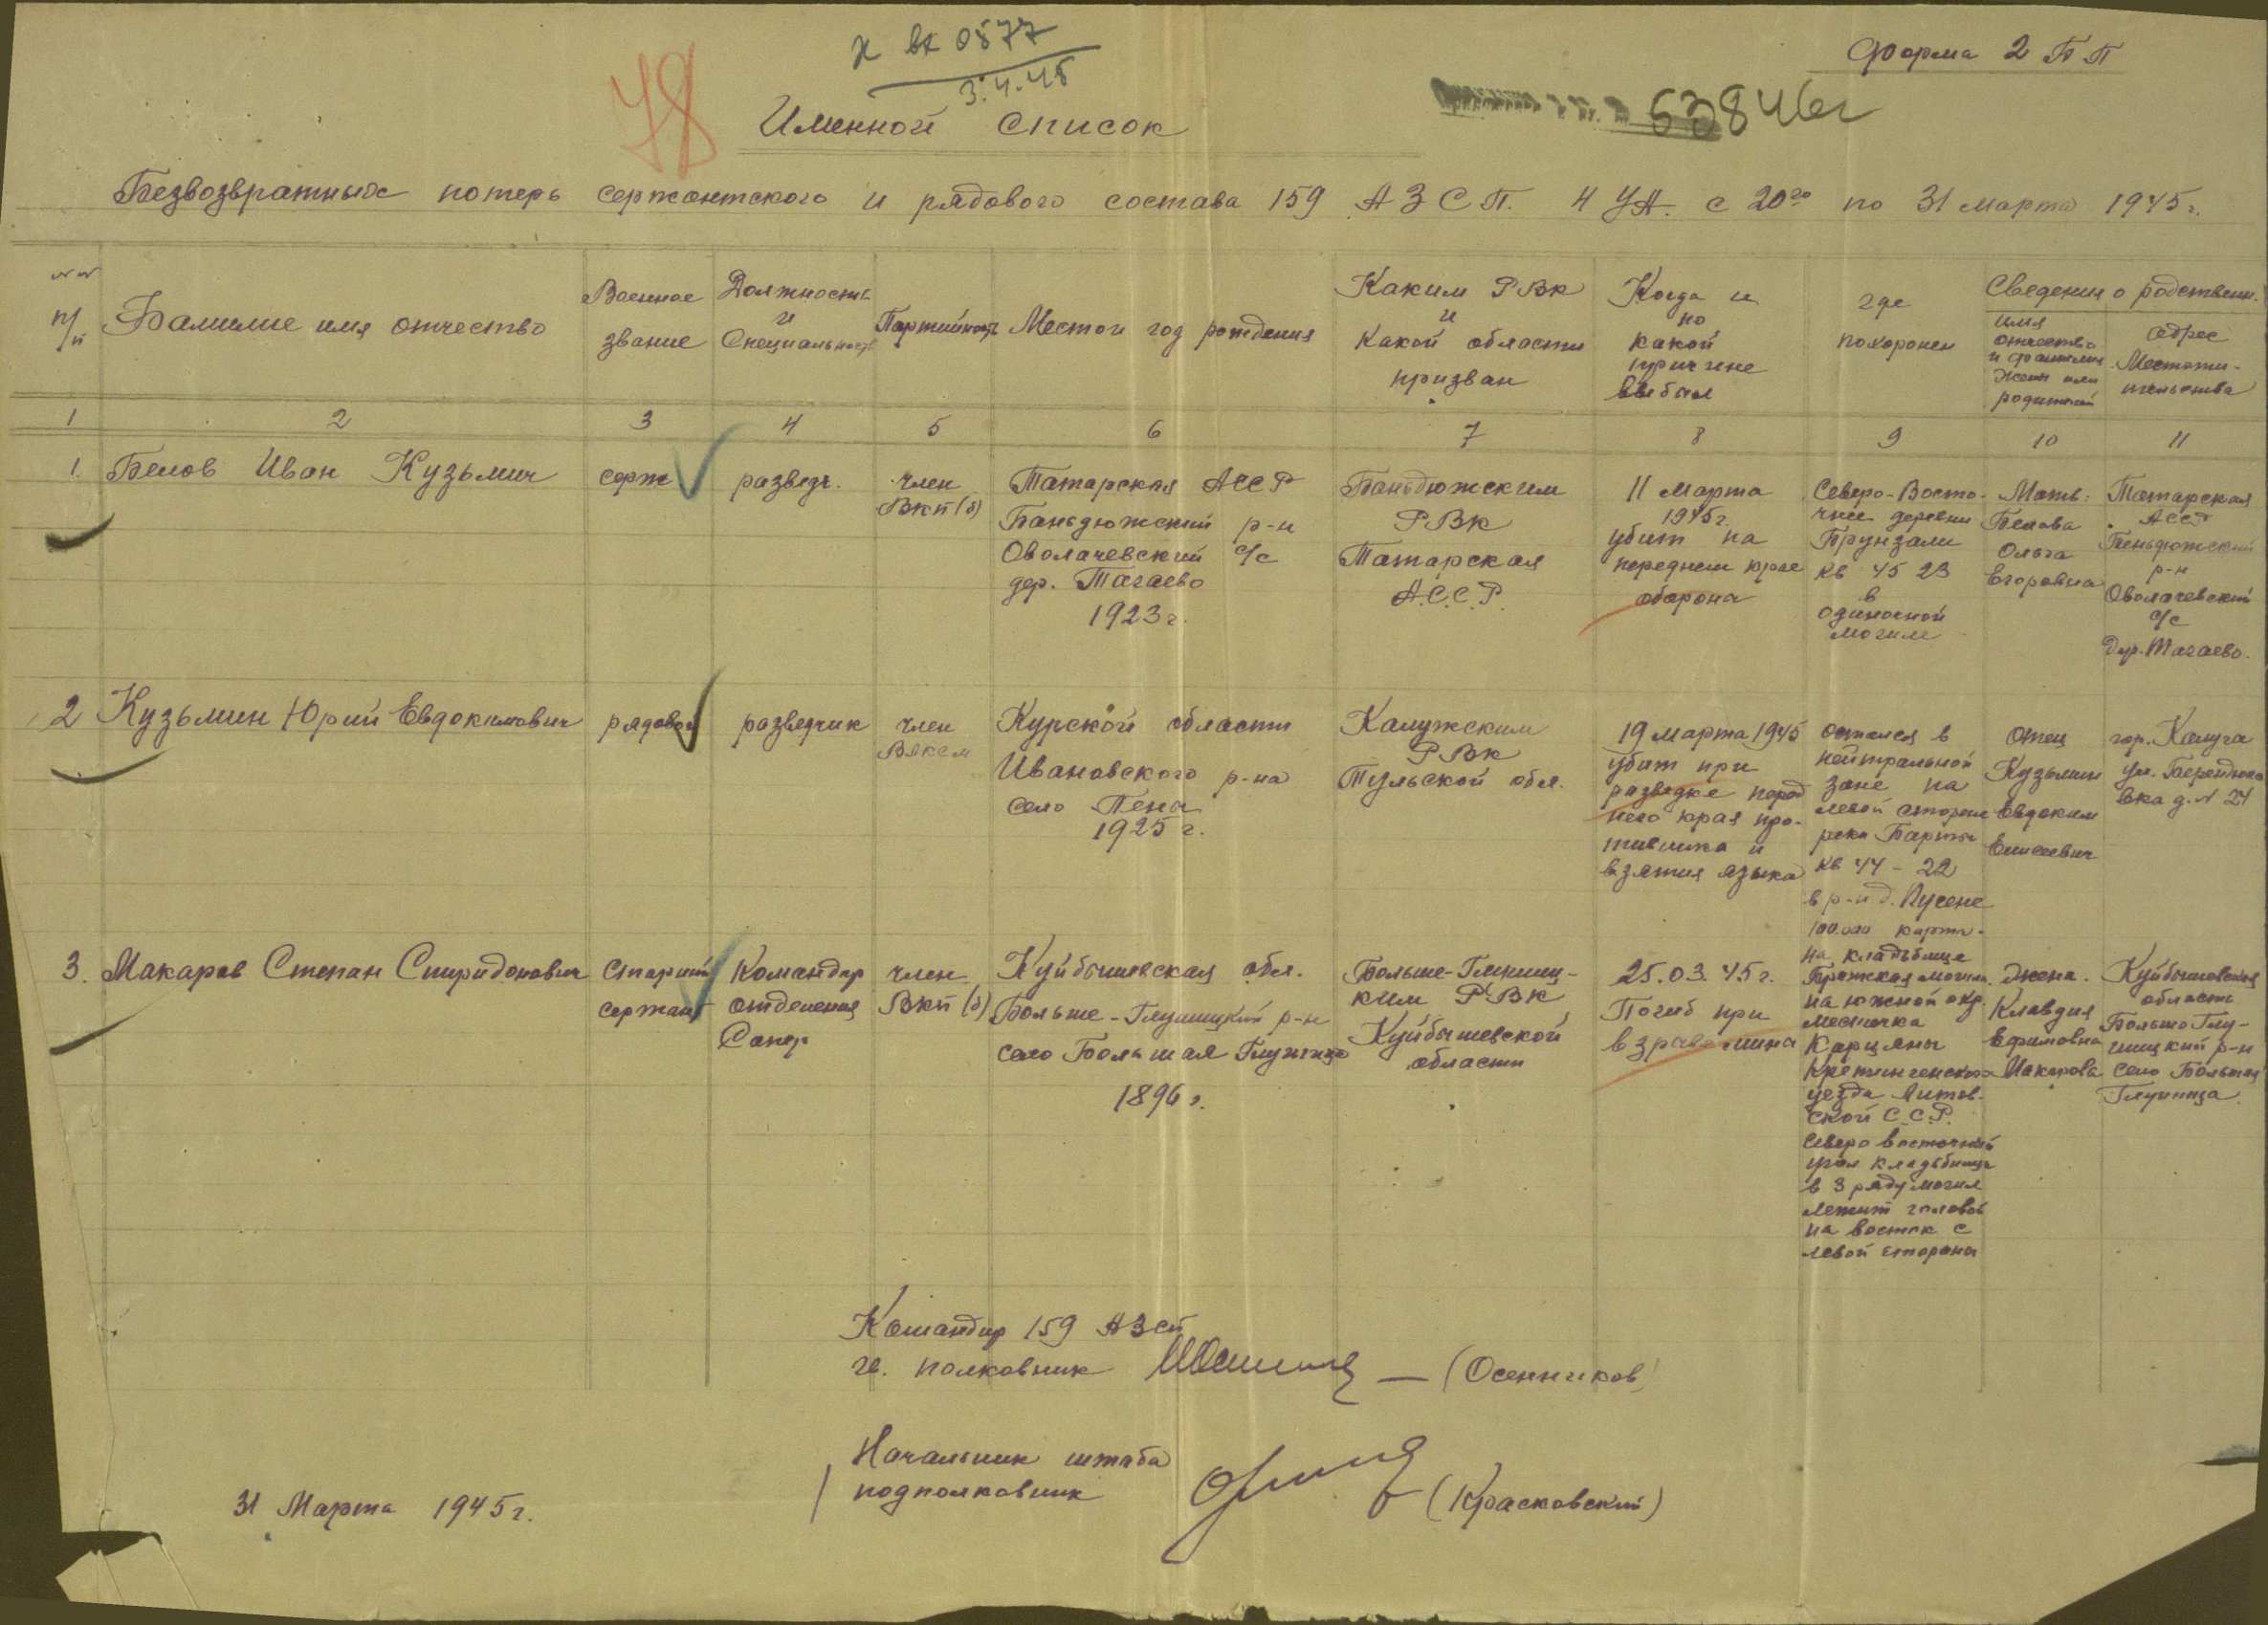 к вх 0877
3.4.45
78
Форма 2 БП
53846с
Именной список
Безвозвратных потерь сержантского и рядового состава 159 АЗСП. 4 УА. с 20го по 31 марта 1945 г.
№№ п/п
Фамилие имя отчество
Военное звание
Должность и Специальность
Партийность
Место и год рождения
Каким РВК и какой области призван
Когда и по какой причине выбыл
где похоронен
Сведения о родственн.
имя отчество и фамилия жены или родителей
адрес Местожительства
1 2 3 4 5 6 7 8 9 10 11
1. Белов Иван Кузьмич
серж
разведч.
член
ВКП(б)
Татарская АССР
Баньдюжский р-н
Оволачевский с/с
дер. Тагаево
1923 г.
Баньдюжским
РВК
Татарская
А.С.С.Р.
11 марта
1945 г.
убит на
переднем крае
оборона
Северо-Восто-
чнее деревни
Брунзали
кв 45 23
в
одиночной
могиле
Мать:
Белова
Ольга
Егоровна
Татарская
АССР
Беньдюжский
р-н
Оволачевский
с/с
дер. Тагаево.
2 Кузьмин Юрий Евдокимович
рядовой
разведчик
член
ВЛКСМ
Курской области
Ивановского р-на
село Пена
1925 г.
Калужским
РВК
Тульской обл.
19 марта 1945
убит при
разведке перед
него края про-
тивника и
взятия языка
остался в
нейтральной
зоне на
левой стороне
реки Барты
кв 44-22
в р-н д. Пусене
100.000 карты.
отец
Кузьмин
Евдоким
Елисеевич
гор. Калуга
ул. Берендяко
вка д. № 24
3. Макаров Степан Спиридонович
Старший
сержант
Командир
отделения
Сапер
член
ВКП(б)
Куйбышевская обл.
Больше-Глушицкий р-н
село Большая Глушица
1896 г.
Больше-Глушиц-
ким РВК
Куйбышевской
области
25.03.45 г.
Погиб при
взраве мина
на кладбище
Бражская могил.
на южной окр.
местечка
Карцяны
Кретингенского
уезда Литов-
ской С.С.Р.
Северо восточный
угол кладбища
в 3 ряду могил
лежит головой
на восток с
левой стороны
Жена.
Клавдия
Ефимовна
Макарова
Куйбышевская
область
Больше Глу-
шицкий р-н
село Большая
Глушица.
Командир 159 АЗСП
гв. полковник — (Осенников)
Начальник штаба
подполковник (Красковский)
31 Марта 1945 г.